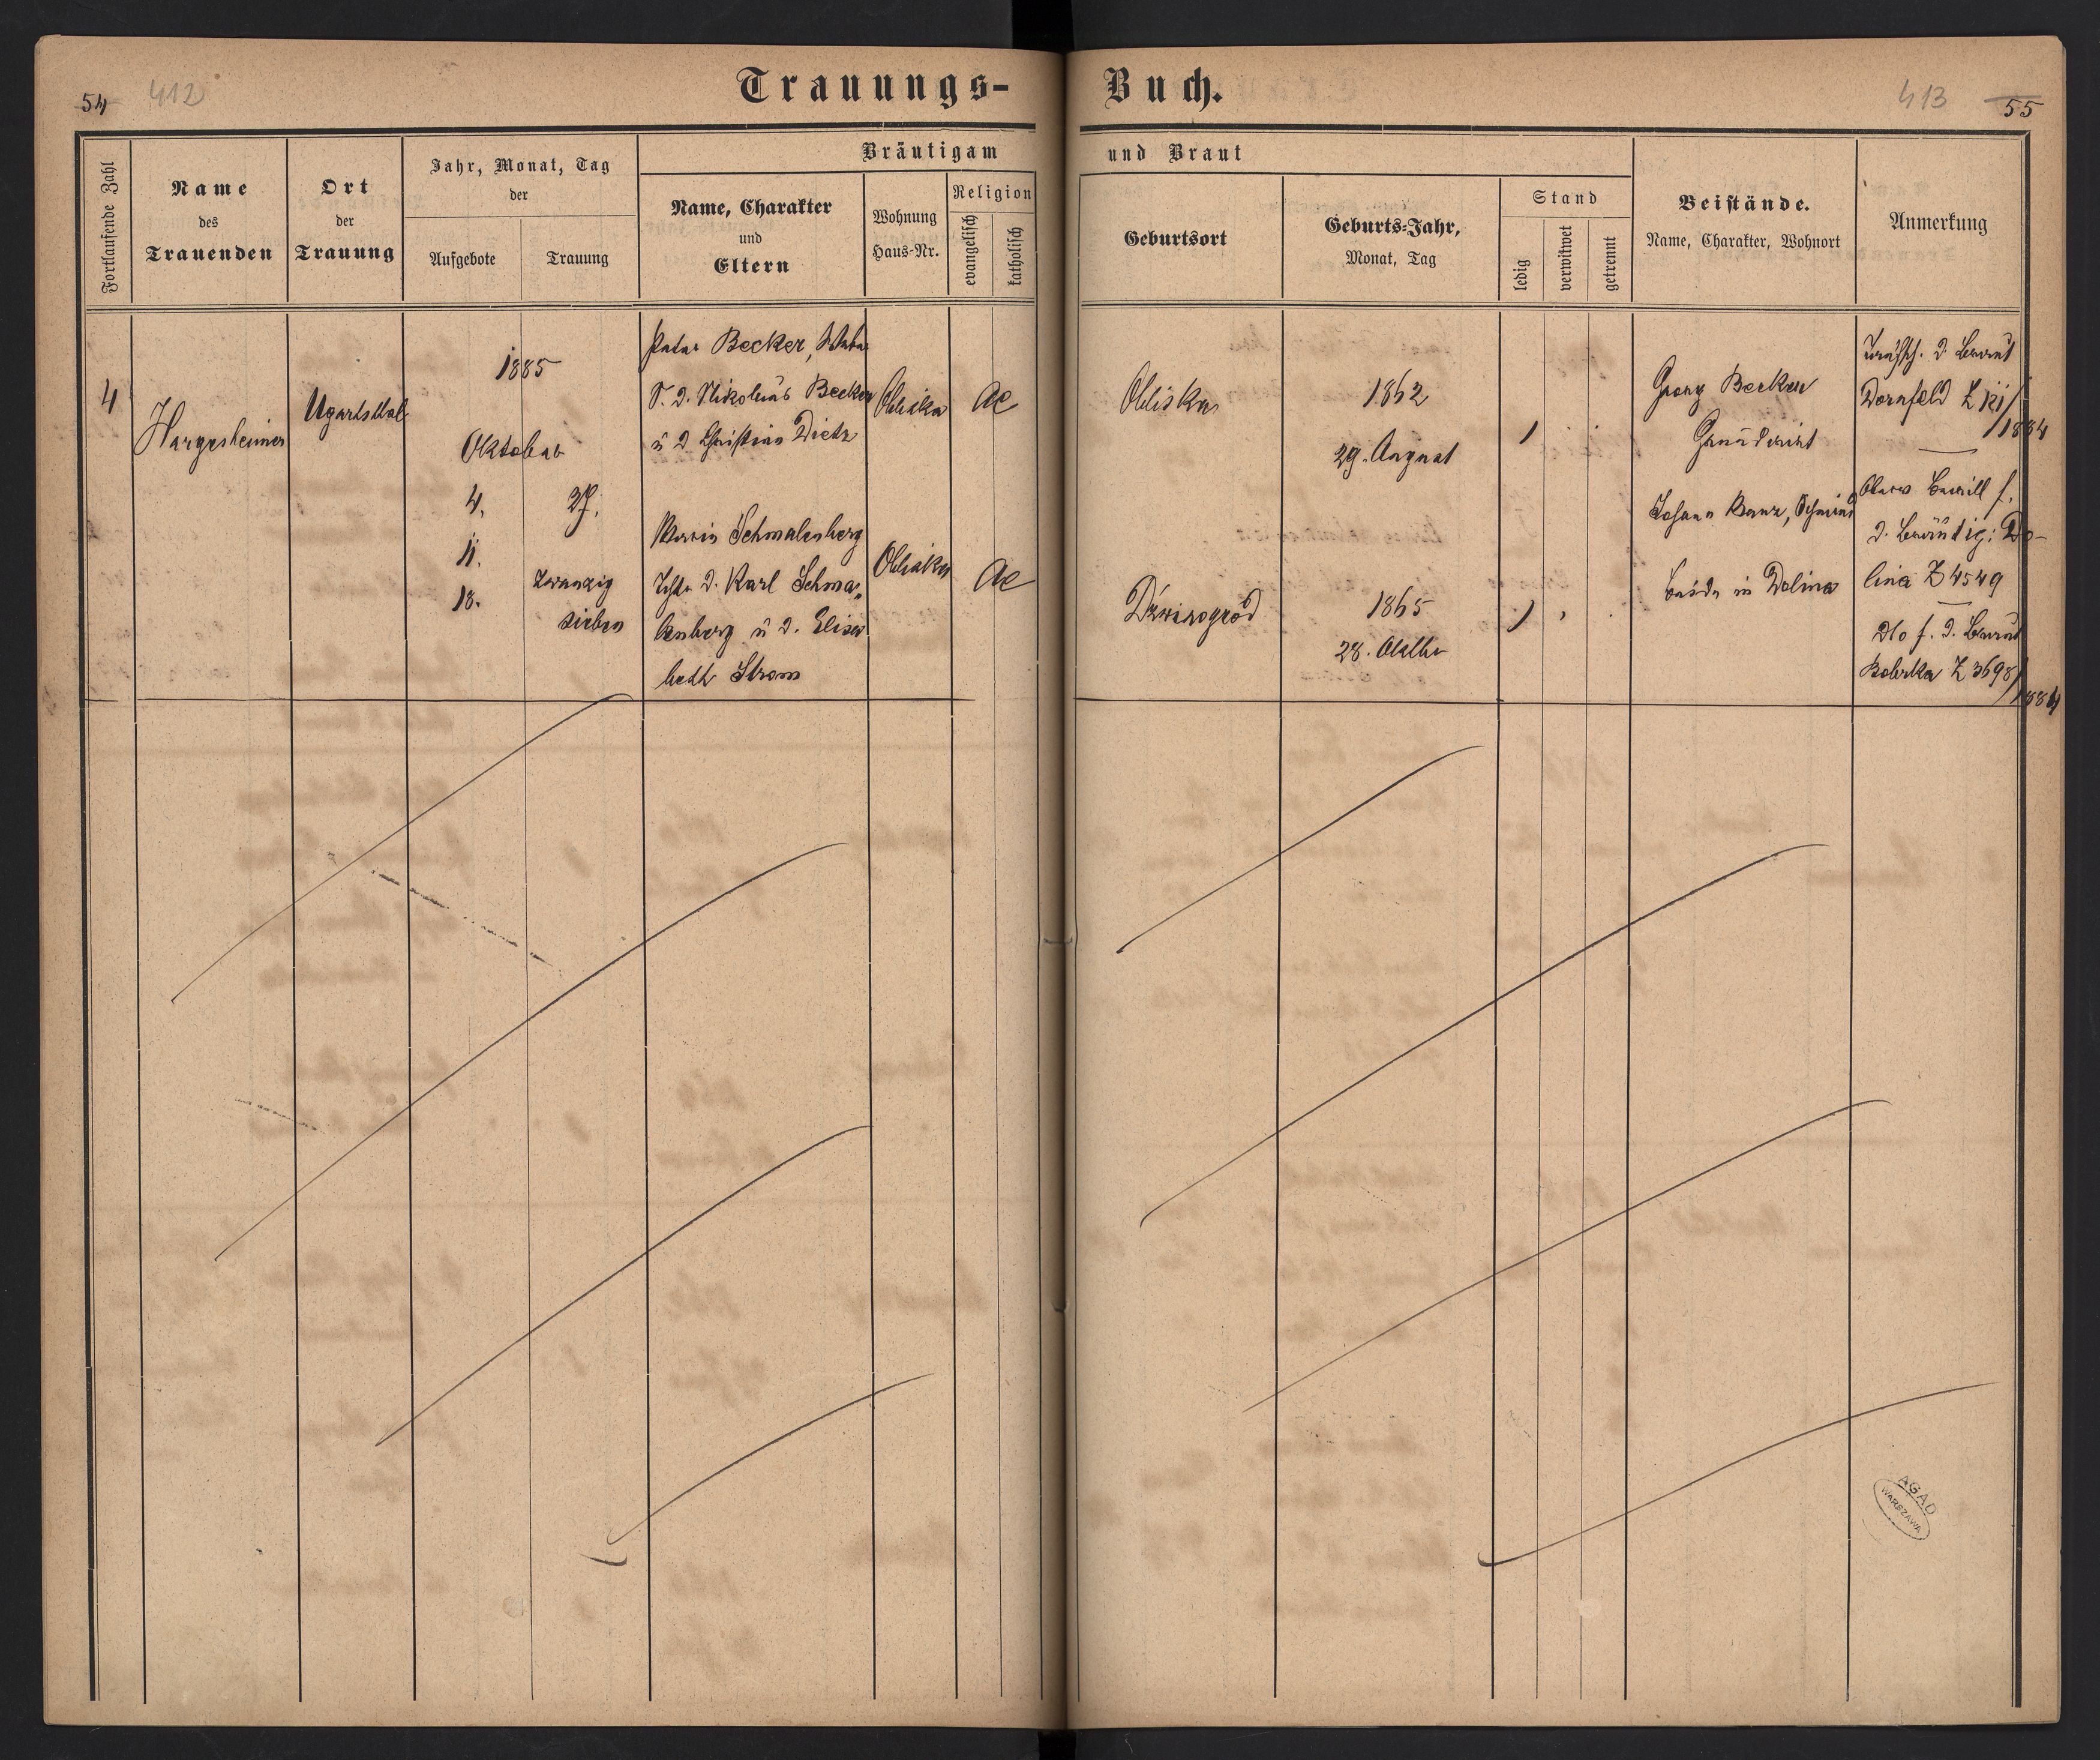 54 412
Trauungs-Buch.
413 55
Fortlaufende Zahl
Name
des
Trauenden
Ort
der
Trauung
Jahr, Monat, Tag
der
Aufgebote
Trauung
Bräutigam und Braut
Name, Charakter
und
Eltern
Wohnung
Haus-Nr.
Religion
evangelisch
katholisch
Geburtsort
Geburts-Jahr,
Monat, Tag
Stand
ledig
verwitwet
getrennt
Beistände.
Name, Charakter, Wohnort
Anmerkung
4
Hargesheimer
Ugartsthal
1885
Oktober
4.
11.
18.
27.
zwanzig
sieben
Peter Becker,
S. d. Nikolaus Becker
u d. Christina Dietz
Obliska
AC
Obliska
1862
29. August
1
Maria Schmalenberg
Tcht. d. Karl Schma-
lenberg u d. Elisa
beth Strom
Obliska
AC
Dźwinogród
1865
28. Oktbr
1
Georg Becker
Grundwirt
Johann Manz, Schmied
beide in Dolina
Taufsch. d Braut
Dornfeld Z
/1884
f.
d. Bräutig: Do-
lina Z 4549
Dto f. d. Braut
Bobrka Z 3698/
1884
AGAD
WARSZAWA